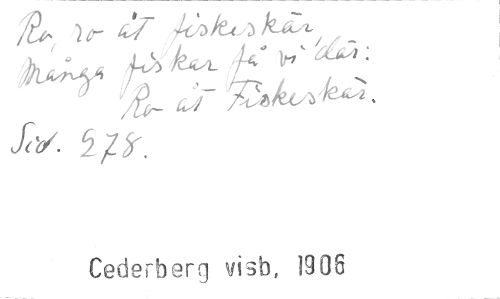 Ro, ro åt fiskeskär,
många fiskar få vi där:
Ro åt Fiskeskär.
Sid. 278.
Cederberg visb, 1906